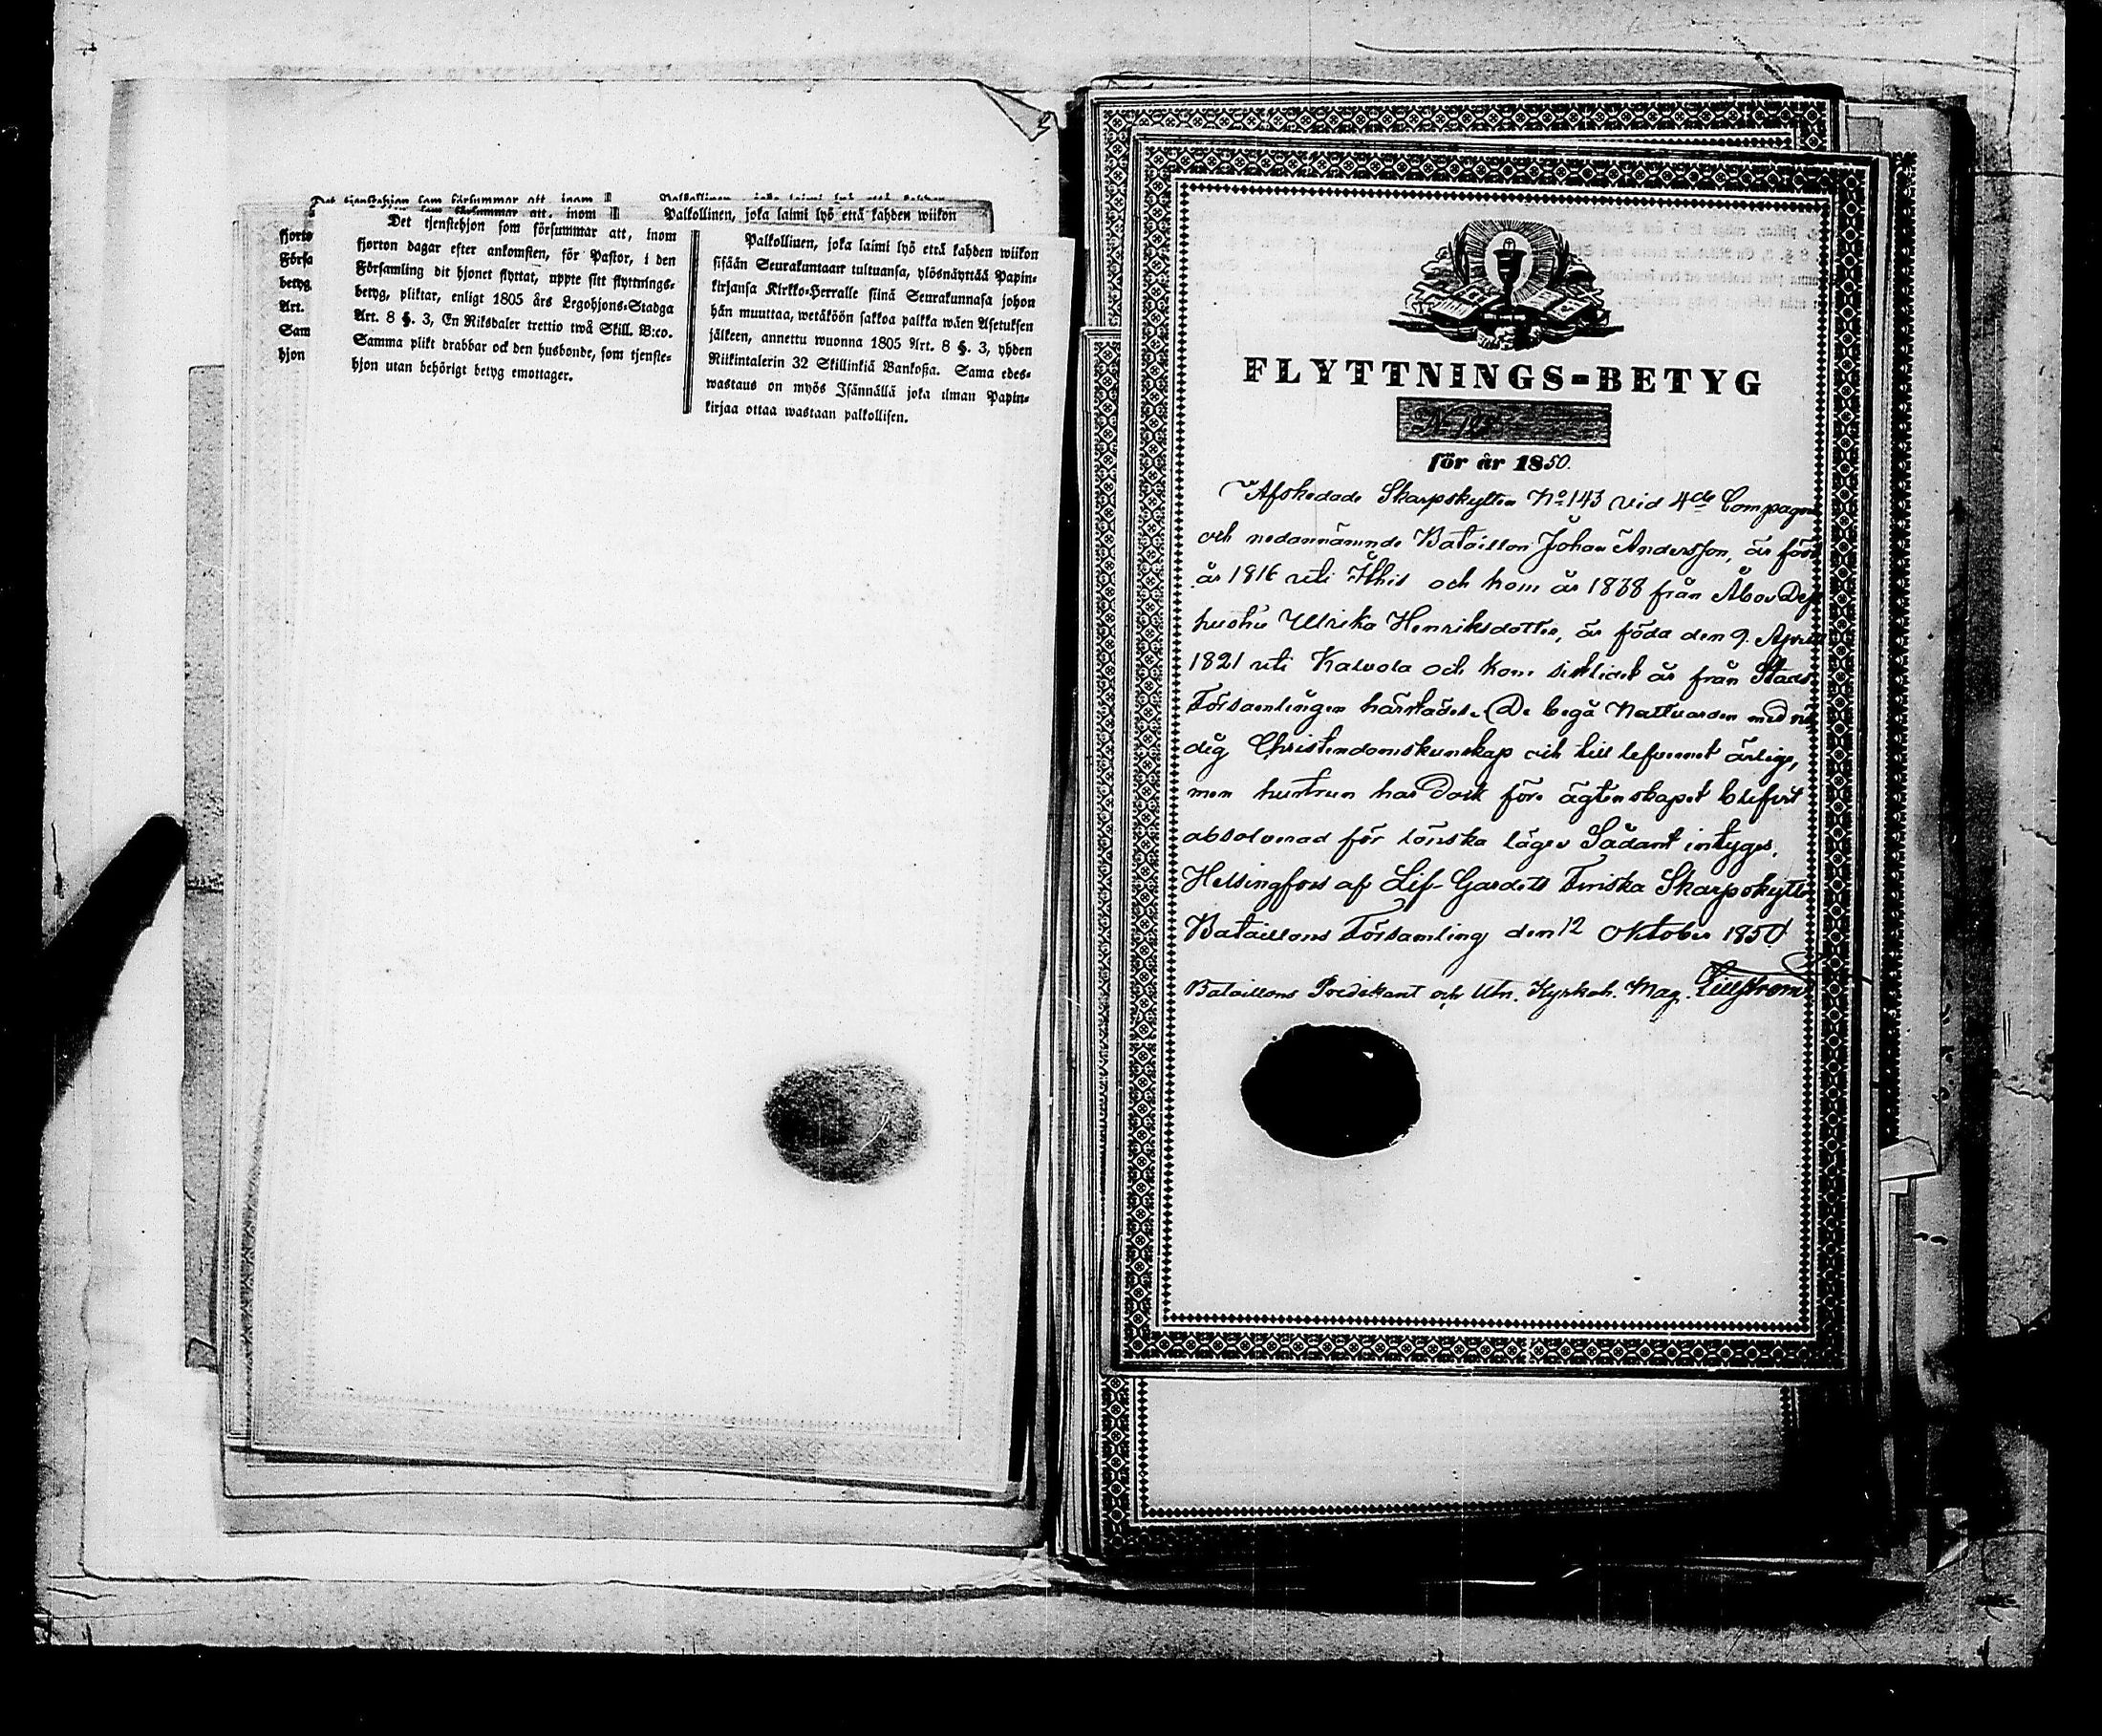 Det tjenstehjon som försummar att, inom
fjorton dagar efter ankomsten, för Pastor, i den
Församling dit hjonet flyttat, uppte sitt flyttnings-
betyg, pliktar, enligt 1805 års Legohjons-Stadga
Art. 8 §. 3, En Riksdaler trettio twå Skill. B:co.
Samma plikt drabbar ock den husbonde, som tjenste-
hjon utan behörigt betyg emottager.
Palkollinen, joka laimi lyö että kahden wiikon
Palkollinen, joka laimi lyö että kahden wiikon
sisään Seurakuntaan tultuansa, ylösnäyttää Papin-
kirjansa Kirkko-Herralle siinä Seurakunnasa johon
hän muuttaa, wetäköön sakkoa palkka wäen Asetuksen
jälkeen, annettu wuonna 1805 Art. 8 §. 3, yhden
Riikintalerin 32 Skillinkiä Bankoßa. Sama edes-
wastaus on myös Isännällä joka ilman Papin-
kirjaa ottaa wastaan palkollisen.
FLYTTNINGS-BETYG
för år 1850.
Afskedade Skarpskytten No 143 vid 4de Compagni
och nedannämnde Bataillon Johan Andersson, är född
år 1816 uti och kom år 1838 från Åbo
hustru Ulrika Henriksdotter, är föda den 9. April
1821 uti Kalvola och kom sistlidet år från Stads
Församlingen härstädes. De begå Nattvarden med
dig Christendomskunskap och till lefvernet ärlige,
men hustrun har dock före ägtenskapet blifvit
absolverad för lönska läger Sådant intygas,
Helsingfors af Lif-Gardets Finska Skarpskytte
Bataillons Församling den 12 Oktober 1850
Bataillons Predikant och Utn. Kyrkoh. Mag. Lillström